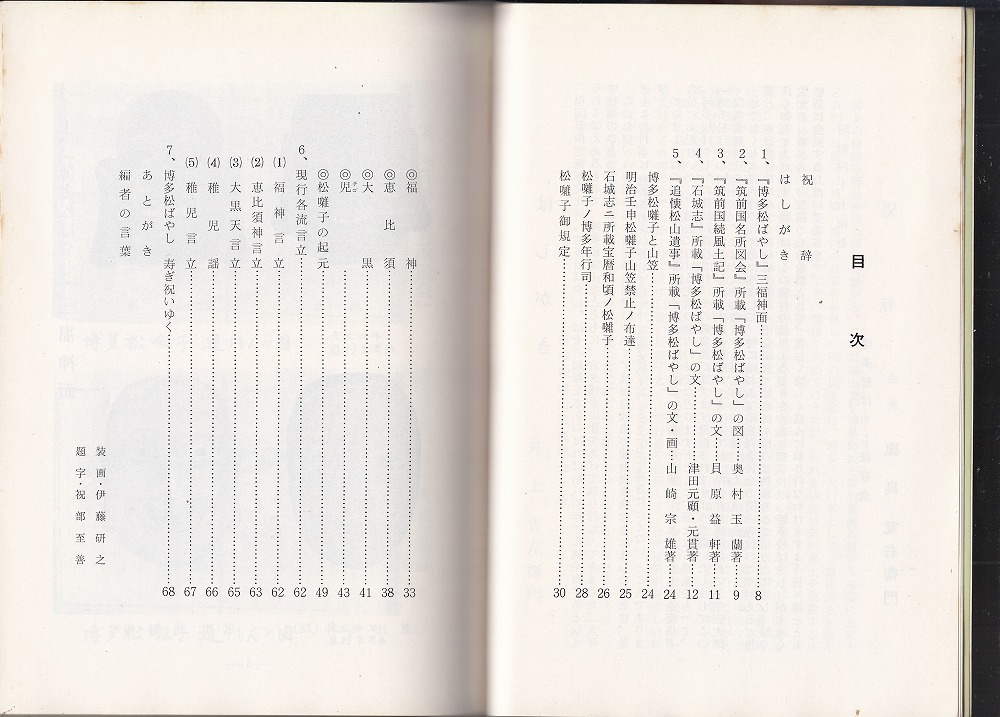 目次
祝辞
はしがき
1、『博多松ばやし』三福神面…………8
2、『筑前国名所図会』所載「博多松ばやし」の図……奥村玉蘭著…9
3、『筑前国続風土記』所載「博多松ばやし」の文……貝原益軒著…11
4、『石城志』所載「博多松ばやし」の文…………津田元顧・元貫著…12
5、『追懐松山遺事』所載「博多松ばやし」の文・画…山崎宗雄著…24
博多松囃子と山笠…………24
明治壬申松囃子山笠禁止ノ布達…………25
石城志ニ所載宝暦和頃ノ松囃子…………26
松囃子ノ博多年行司…………28
松囃子御規定…………30
◎福神…………33
◎恵比須…………38
◎大黒…………41
◎児…………43
チゴ
◎松囃子の起元…………49
6、現行各流言立…………62
(1)福神言立…………62
(2)恵比須神言立…………63
(3)大黒天言立…………65
(4)稚児謡…………66
(5)稚児言立…………67
7、博多松ばやし寿ぎ祝いゆく…………68
あとがき
編者の言葉
装画・伊藤研之
題字・祝部至善